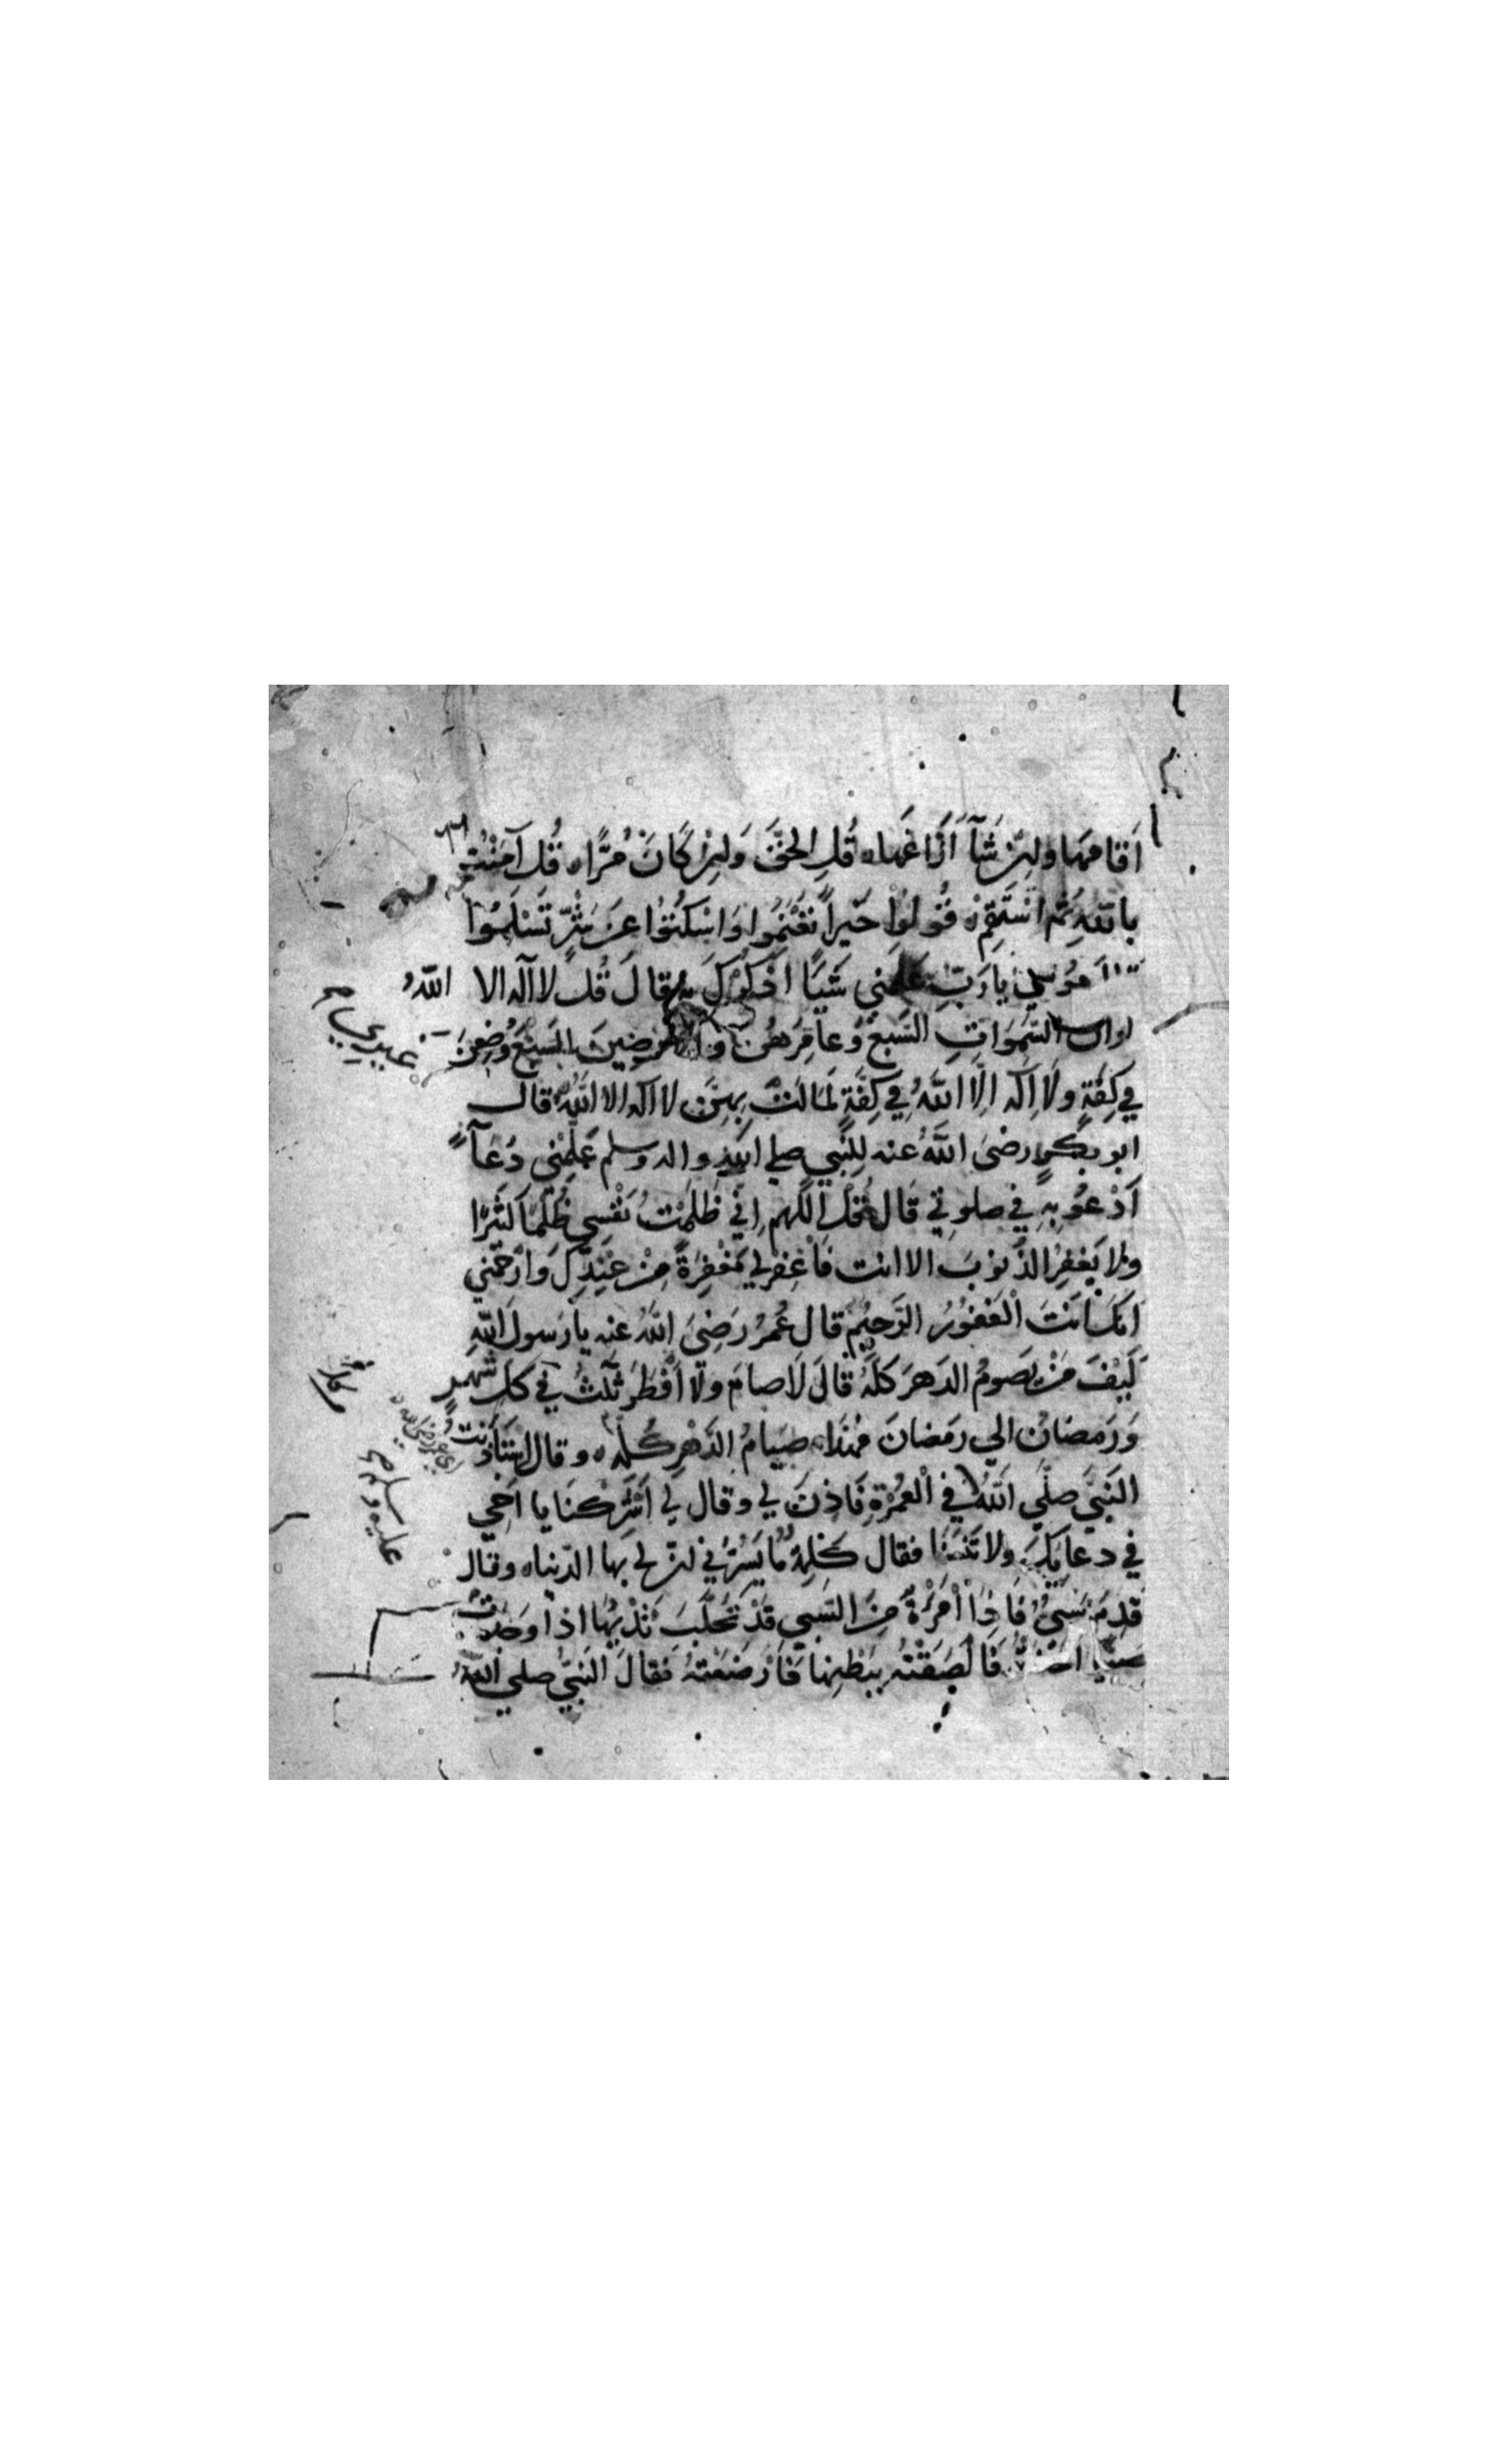 اَقَامَهَا وَاِنْ شَآءَ اَزَاغَهَا، قُلِ الحَقَّ وَاِنْ كَانَ مُرًّا، قُلْ آمَنْتُ
بِاللّٰهِ ثُمَّ اسْتَقِمْ، قُولُوا خَيْراً تَغْنَمُوا وَاسْكُتُوا عَنْ شَرٍّ تَسْلَمُوا
مُوسٰي يَا رَبِّ عَلِّمْنِي شَيْئًا اَذْكُرُكَ بِهِ قَالَ قُلْ لا آله الا اللّٰهُ
لو ان السَّمٰوَاتِ السَّبْعَ وَعَامِرَهُنَّ والارَضِينَ السَّبْعَ وُضِعْنَ
فِي كِفَّةٍ وَلَا اِلَه اِلَّا اللّٰهُ فِي كِفَّةٍ لَمَالَتْ بِهِنَّ لا اله الا اللّٰهُ قال
ابو بكرٍ رضىَ اللّٰهُ عنه لِلنَّبِي صلي اللّٰه واله وسلم عَلِّمْنِي دُعَآءً
اَدْعُو بِهِ فِي صلوتي قَالَ قُلْ اللّٰهم اِنِّي ظَلَمْتُ نَفْسِي ظُلْمًا كَثِيرًا
ولا يَغْفِرُ الذُّنوبَ الا انت فَاغْفِرْ لِي مَغْفِرَةً مِنْ عِنْدِكَ وَارْحَمْنِي
اِنَكَ اَنْتَ الْغَفُوْرُ الرَّحِيْمُ قال عُمَرُ رَضِىَ اللّٰهُ عنه يا رَسولَ اللّٰهِ
كَيْفَ مَنْ يَصَومُ الدَهرَ كلَّهُ قَالَ لَا صامَ ولا اَفْطَرَ ثَلٰثٌ فِي كُلِّ شَهْرٍ
وَرَمَضَانُ الي رَمَضانَ فهٰذَا صِيَامُ الدَّهْرِ كُلِّهِ، وقال استَاذَنْتُ
النَبِيَّ صلَّي اللّٰهُ في الْعُمْرَةِ فَاَذِنَ لِي وقال لِي اَشْرِكْنَا يا اَخِي
في دعايكَ ولا تَنْسَنَا فقال كَلِمَةً مَا يَسُرُّنِي اَنَّ لي بها الدّنيا، وقال
قَدِمَ سَبْيٌ فَاِذَا اْمْرَءَةٌ مِنَ السَّبي قَدْ تَحَلَّبَ ثَدْيُهَا اذا وَجَدَتْ
صَبِيًّا اخذته فَاَلْصَقَتْهُ بِبَطْنِهَا فَاَرْضَعَتْهُ فَقَالَ النَّبِيُّ صلي اللّٰهُ
عليه وسلم